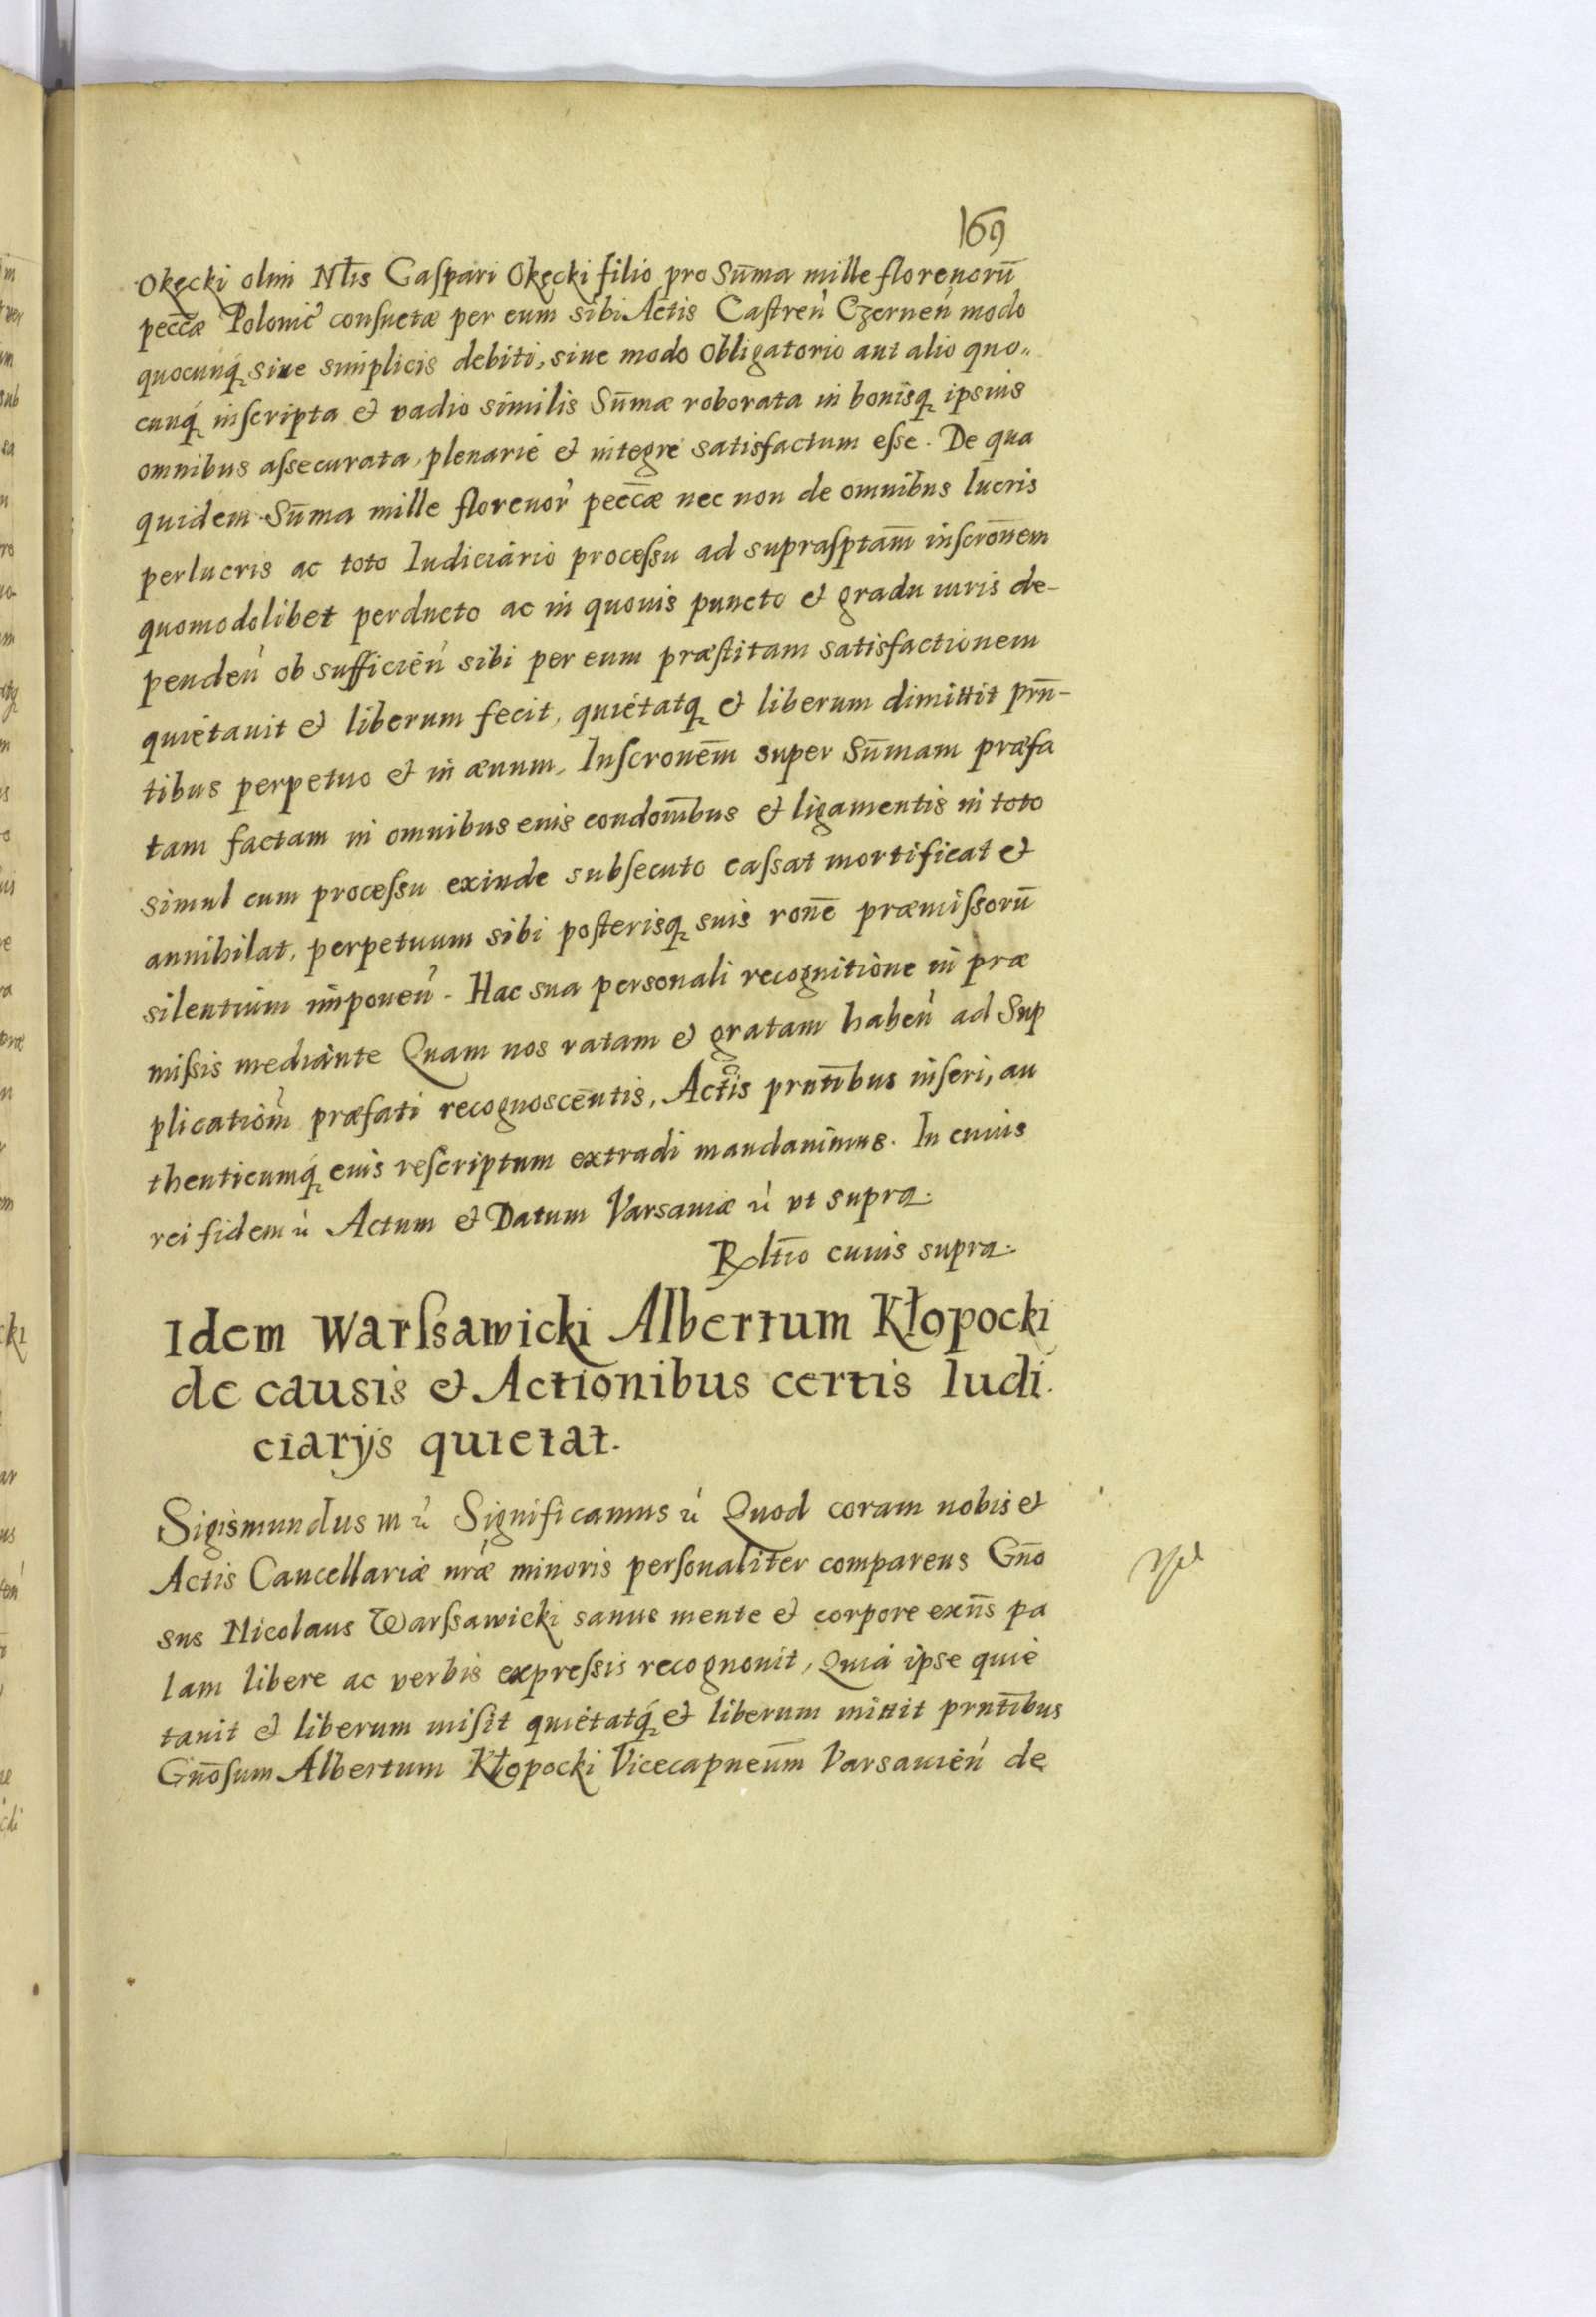 169
Okęcki olim Nt̄is Gaspari Okęcki filio pro Sum̄a mille florenorū
pecc̄æ Polonic̓ consuetæ per eum sibi Actis Castren̓ Czernen̓ modo
quocunq́ꝫ siue simplicis debiti, siue modo obligatorio aut alio quo„
cunq́ꝫ inscripta et vadio similis Sum̄æ roborata in bonisqꝫ ipsius
omnibus assecurata, plenarié et integré satisfactum esse. De qua
quidem Sum̄a mille florenor̓ pecc̄æ nec non de omnibus lucris
perlucris ac toto Iudiciario processu ad suprasptam̄ inscrōnem
quomodolibet perducto ac in quouis puncto et gradu iuris de-
penden̓ ob sufficien̓ sibi per eum præstitam satisfactionem
quiétauit et liberum fecit, quiétatqꝫ et liberum dimittit prn̄-
tibus perpetuo et in æuum, Inscronem̄ super Sum̄am præfa
tam factam in omnibus eius condom̄bus et ligamentis in toto
simul cum processu exinde subsecuto cassat mortificat et
annihilat, perpetuum sibi posterisqꝫ suis ronē præmissorū
silentium imponen̓. Hac sua personali recognitione in præ
missis mediante Quam nos ratam et gratam haben̓ ad Sup
plicatiom̓ præfati recognoscentis, Actis prntībus inseri, au
thenticumq́ꝫ eius rescriptum extradi mandauimus. In cuius
rei fidem ù Actum et Datum Varsauiæ ù vt supra.
Rltīo cuius supra.
Idem Warssawicki Albertum Kłopocki
de causis et Actionibus certis Iudi.
ciarÿs quietat.
Sigismundus III ù Significamus ù Quod coram nobis et
Actis Cancellariæ nrǽ minoris personaliter comparens Gn̄o
sus Nicolaus Warssawicki sanus mente et corpore exn̄s pa
lam libere ac verbis expressis recognouit, Quia ipse quié
tauit et liberum misit quiétatq́ꝫ et liberum mittit prntībus
Gn̄osum Albertum Kłopocki Vicecapneum̄ Varsauien̓ de